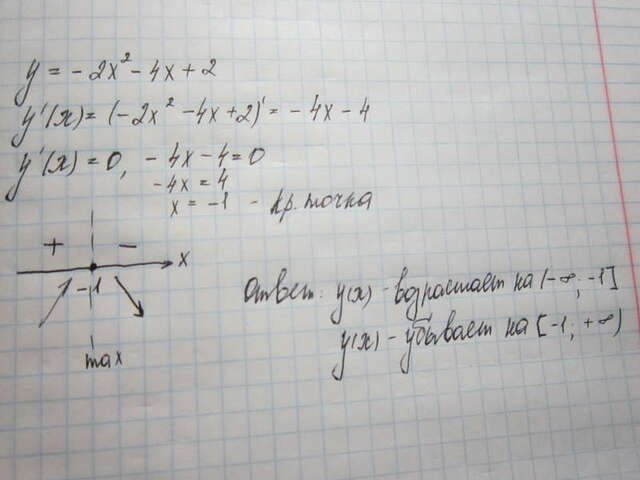 y = -2x² - 4x + 2
y'(x) = (-2x² - 4x + 2)' = -4x - 4
y'(x) = 0, -4x - 4 = 0
-4x = 4
x = -1 - кр. точка
+ - x
-1
max
Ответ: y(x) - возрастает на (-∞; -1]
y(x) - убывает на [-1; +∞)